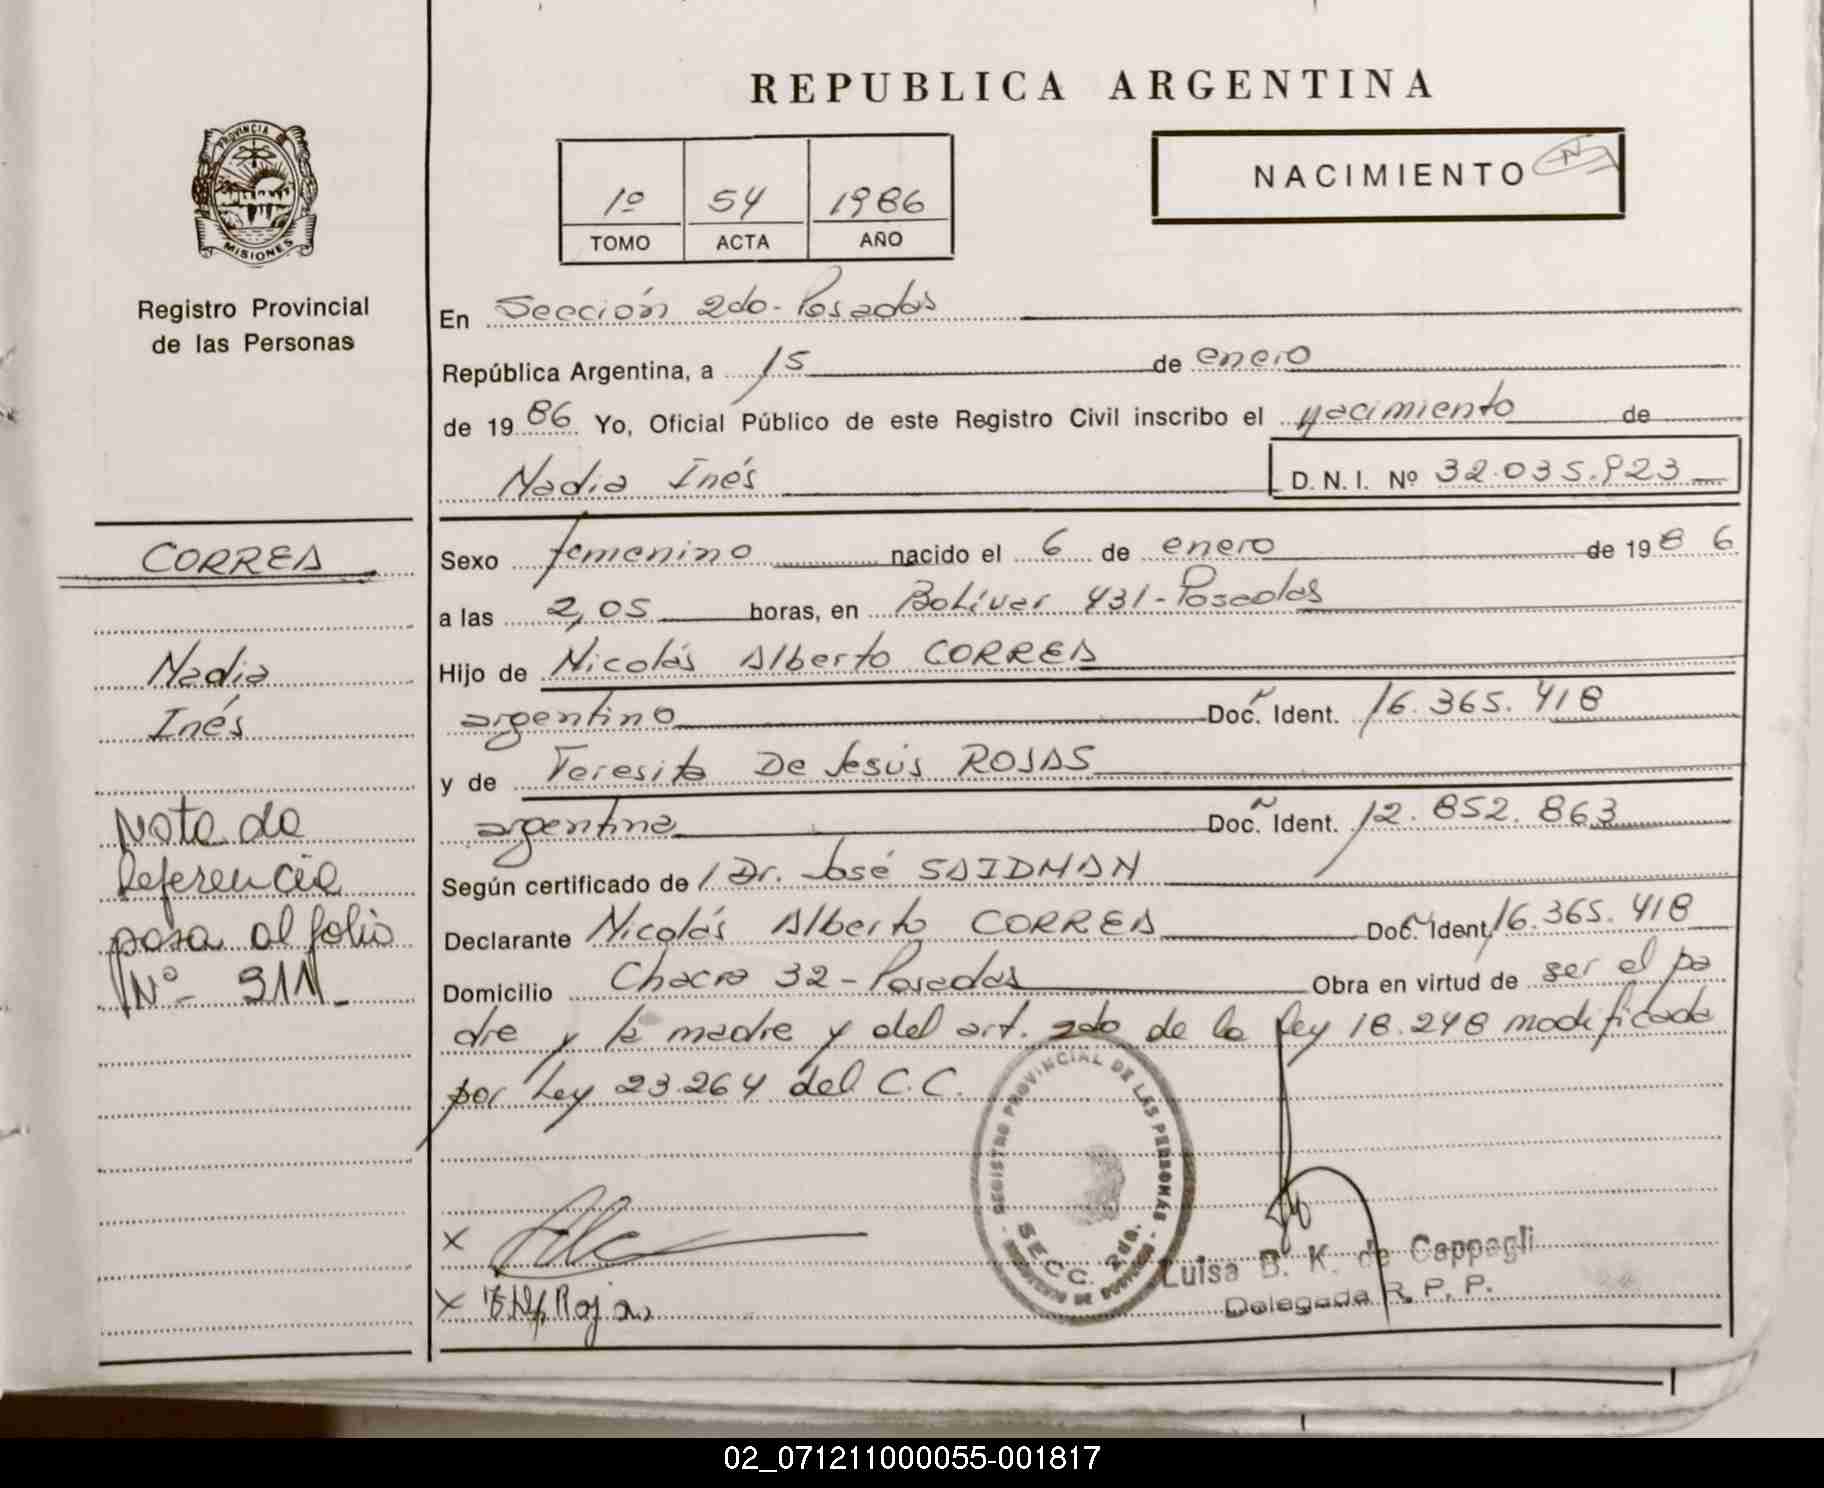 REPUBLICA ARGENTINA
1º 54 1986
TOMO ACTA AÑO
NACIMIENTO
PROVINCIA DE
MISIONES
Registro Provincial
de las Personas
En Sección 2do-Posadas
República Argentina, a 15 de enero
de 1986 Yo, Oficial Público de este Registro Civil inscribo el nacimiento de
Nadia Inés D. N. I. Nº 32.035.923
Sexo femenino nacido el 6 de enero de 1986
a las 2,05 horas, en Bolívar 431-Posadas
Hijo de Nicolás Alberto CORREA
argentino Doc. Ident. 16.365.418
y de Teresita De Jesús ROJAS
argentina Doc. Ident. 12.852.863
Según certificado de Dr. José SAIDMAN
Declarante Nicolás Alberto CORREA Doc. Ident. 16.365.418
Domicilio Chacra 32-Posadas Obra en virtud de ser el pa
dre y la madre y del art. 2do de la ley 18.248 modificada
por Ley 23.264 del C.C.
CORREA
Nadia
Inés
Nota de
Referencia
pasa al folio
Nº 311
REGISTRO PROVINCIAL DE LAS PERSONAS
SECC. 2da.
X
X Rojas
Luisa B. K. de Cappagli
Delegada R. P. P.
02_071211000055-001817